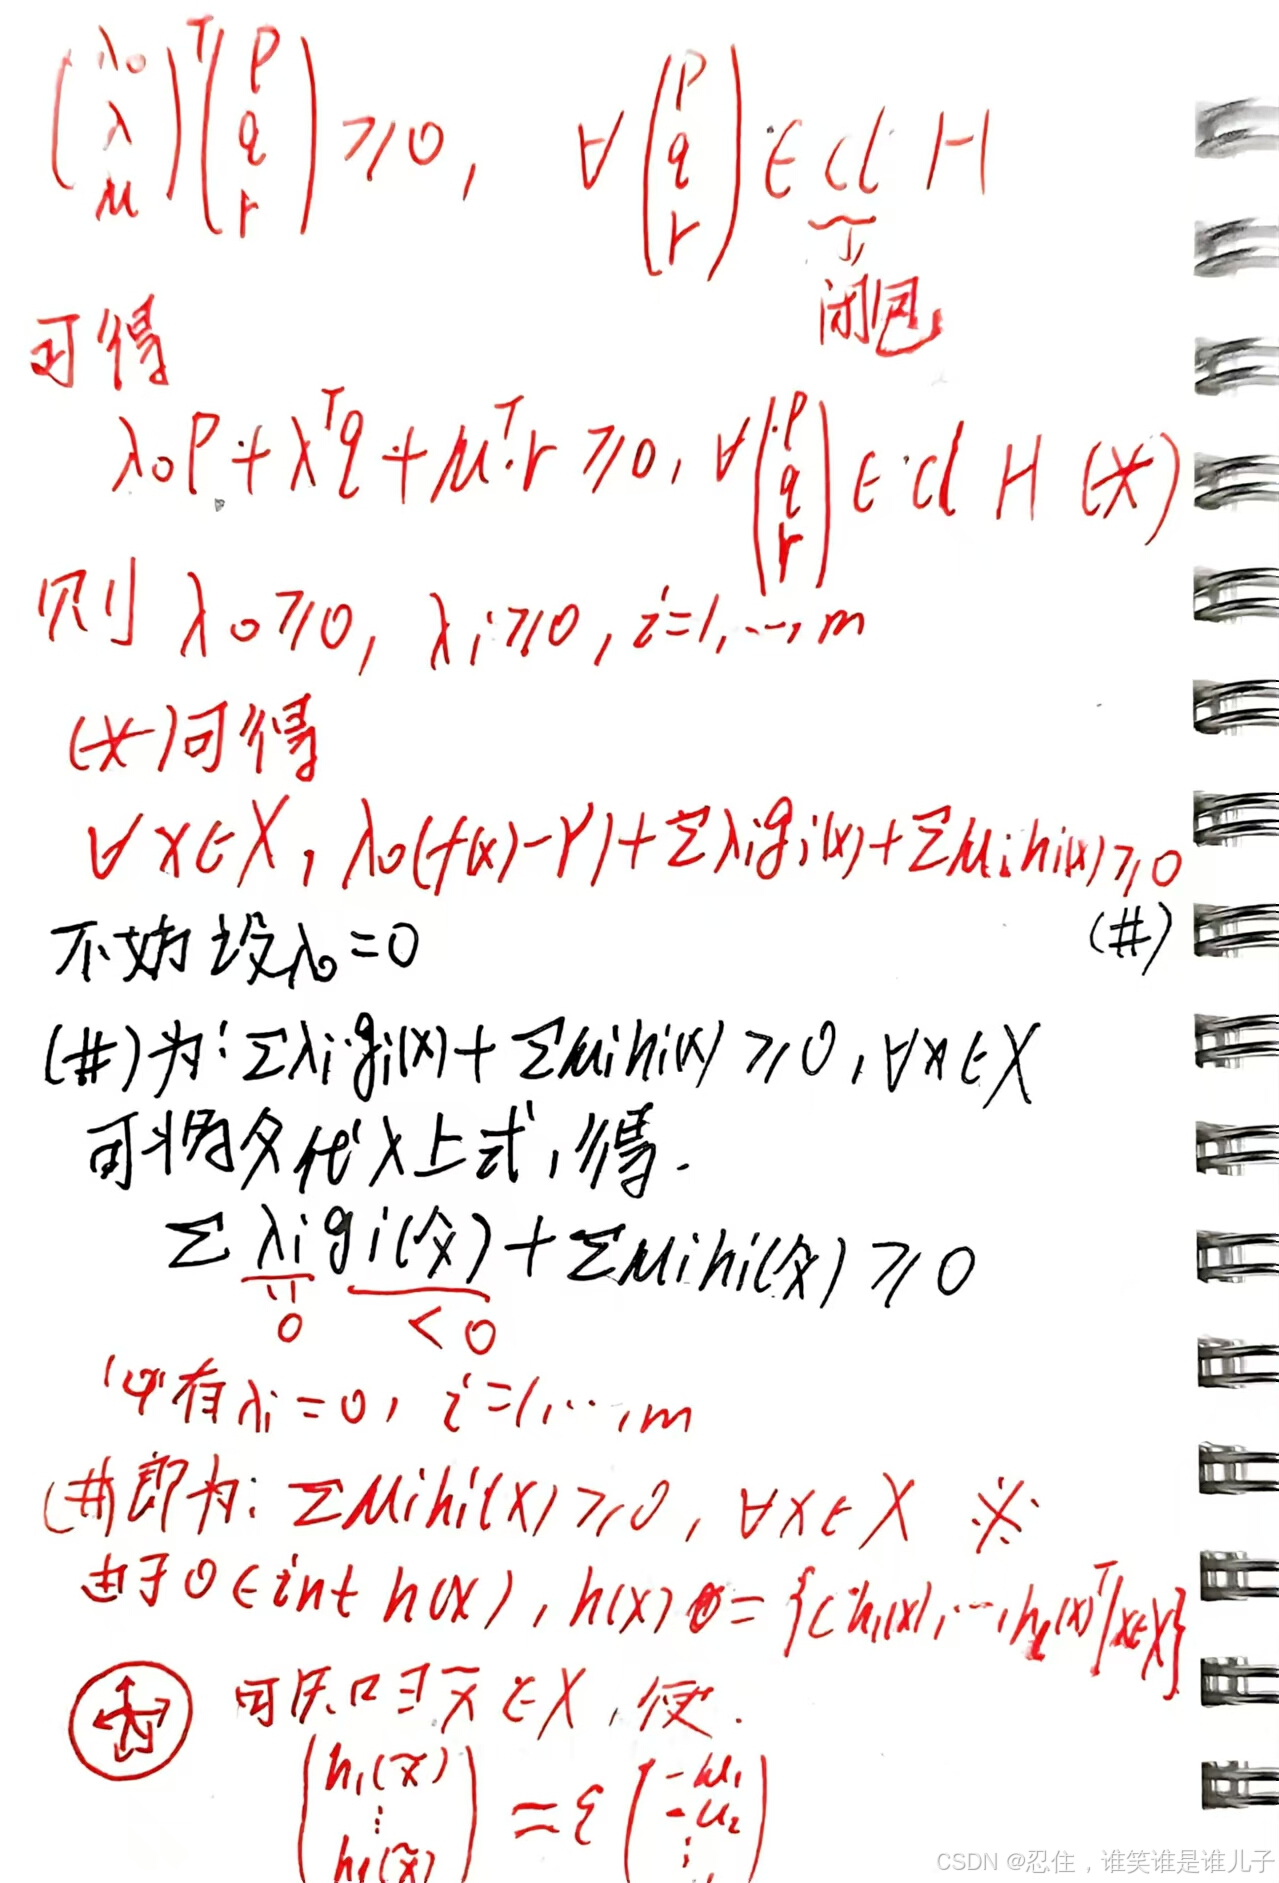 (λ₀ λ μ)ᵀ (p q r) ≥ 0, ∀ (p q r) ∈ cl H
闭包
可得
λ₀p + λᵀq + μᵀ·r ≥ 0, ∀ (p q r) ∈ cl H (*)
则 λ₀ ≥ 0, λᵢ ≥ 0, i=1,…,m
(*)可得
∀x∈X, λ₀(f(x)-γ)+Σλᵢgᵢ(x)+Σμᵢhᵢ(x) ≥ 0
(#)
不妨设λ₀=0
(#)为: Σλᵢgᵢ(x)+Σμᵢhᵢ(x) ≥ 0, ∀x∈X
可将x̂代入上式, 得.
Σλᵢgᵢ(x̂)+Σμᵢhᵢ(x̂) ≥ 0
0 <0
有λᵢ=0, i=1,…,m
(#)即为: Σμᵢhᵢ(x) ≥ 0, ∀x∈X ※
由于0∈int h(x), h(x)={(h₁(x),…,hₗ(x))ᵀ|x∈X}
可知∃x̃∈X, 使.
(h₁(x̃) ⋮ hₗ(x̃)) = ε (-μ₁ -μ₂ ⋮
CSDN @忍住，谁笑谁是谁儿子